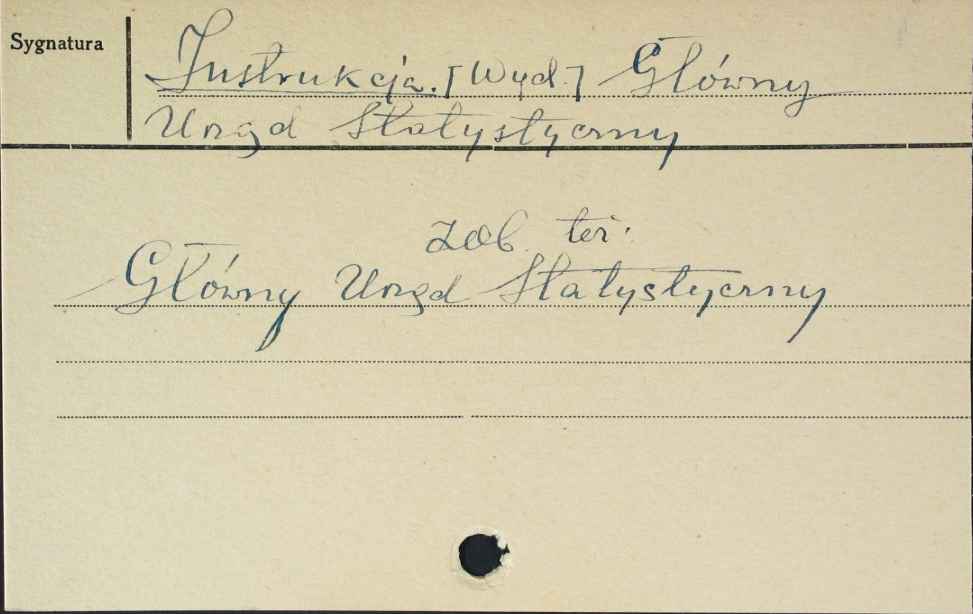 Sygnatura
Instrukcja. [Wyd.] Główny
Urząd Statystyczny
zob. też:
Główny Urząd Statystyczny